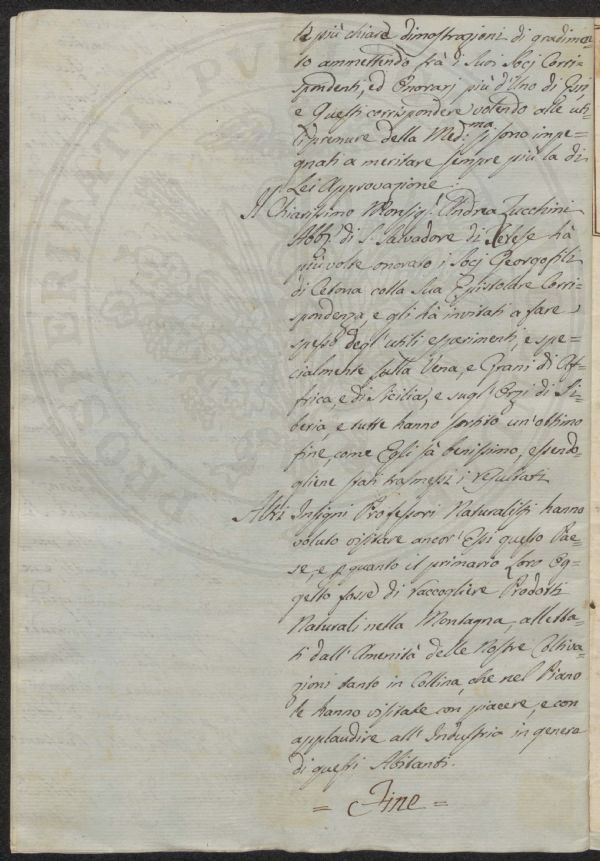 le più chiare dimostrazioni di gradimen-
to ammettendo frà i Suoi Socj Corri-
spondenti, ed Onorarj più d'Uno di Essi
e Questi corrispondere volendo alle uti-
li premure della Med.ma si sono impe-
gnati a meritare sempre più la di
Lei Approvazione.
Il Chiarissimo Monsig.r Andrea Zucchini
Abb.e di S. Salvadore di Sestese hà
più volte onorato i Socj Georgofili
di Cetona colla Sua Epistolare Corri-
spondenza, e gli hà invitati a fare
spesso degl'utili esperimenti, e spe-
cialmente sulla Vena, e Grani di Af-
frica, e di Sicilia, e sugl'Orzi di Si-
beria, e tutte hanno sortito un'ottimo
fine, come Egli sà benissimo, essendo-
gliene stati trasmessi i resultati
Altri Insigni Professori Naturalisti hanno
voluto visitare ancor'Essi questo Pae-
se, e p quanto il primario Loro Og-
getto fosse di raccogliere Prodotti
Naturali nella Montagna, alletta-
ti dall'Amenità delle Nostre Coltiva-
zioni tanto in Collina, che nel Piano
le hanno visitate con piacere, e con
applaudire all'Industria in genere
di questi Abitanti.
= Fine =
PROSPERITATI PUBLICAE